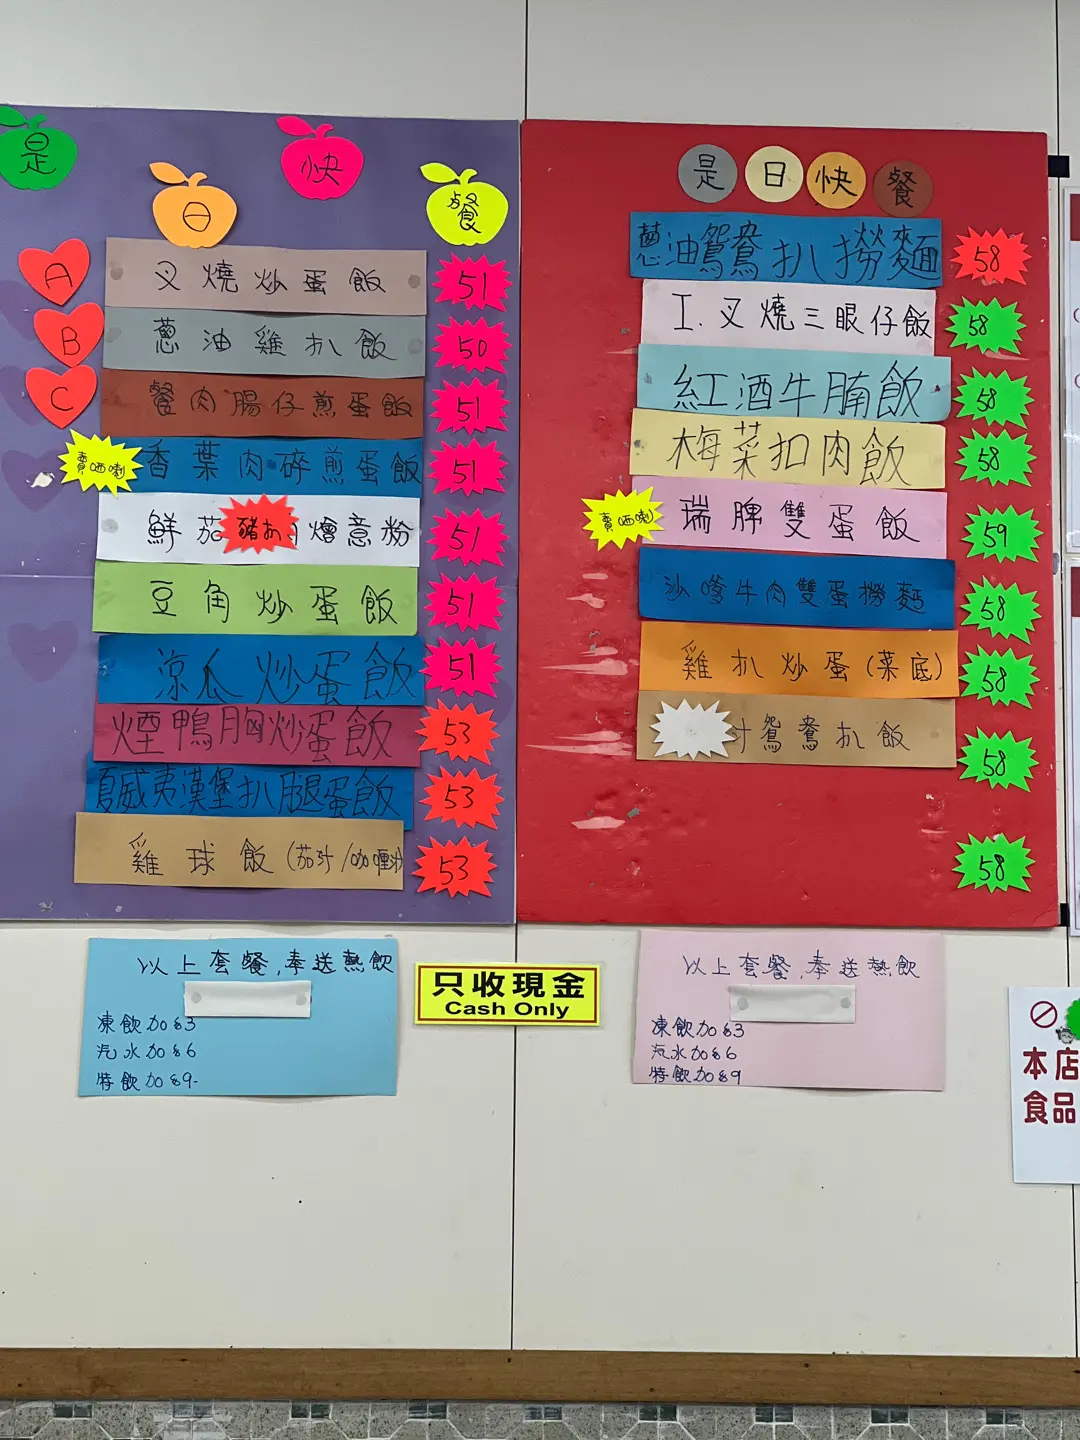 是日快餐
A 叉燒炒蛋飯 51
B 蔥油雞扒飯 50
C 餐肉腸仔煎蛋飯 51
賣哂喇 香葉肉碎煎蛋飯 51
鮮茄豬扒燴意粉 51
豆角炒蛋飯 51
涼瓜炒蛋飯 51
煙鴨胸炒蛋飯 53
夏威夷漢堡扒腿蛋飯 53
雞球飯(茄汁/咖喱汁) 53
以上套餐,奉送熱飲
凍飲加$3
汽水加$6
特飲加$9-
只收現金
Cash Only
是日快餐
蔥油鴛鴦扒撈麵 58
工.叉燒三眼仔飯 58
紅酒牛腩飯 58
梅菜扣肉飯 58
賣哂喇 瑞脾雙蛋飯 59
沙嗲牛肉雙蛋撈麵 58
雞扒炒蛋(菜底) 58
汁鴛鴦扒飯 58
58
以上套餐,奉送熱飲
凍飲加$3
汽水加$6
特飲加$9
本店
食品